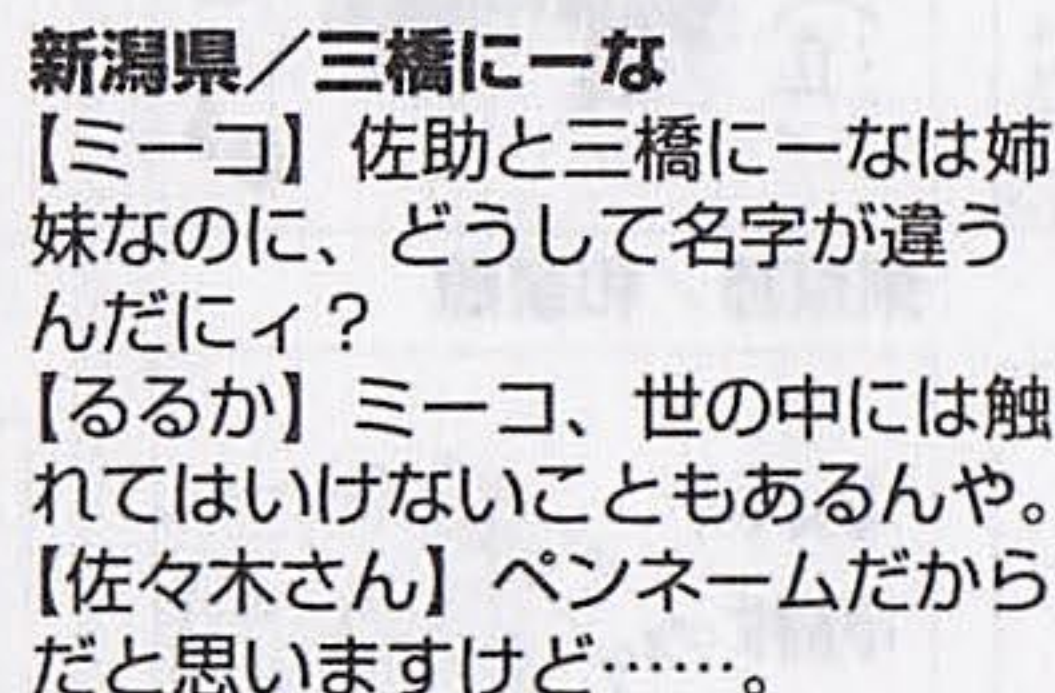 新潟県／三橋にーな
【ミーコ】佐助と三橋にーなは姉
妹なのに、どうして名字が違う
んだにィ？
【るるか】ミーコ、世の中には触
れてはいけないこともあるんや。
【佐々木さん】ペンネームだから
だと思いますけど……。